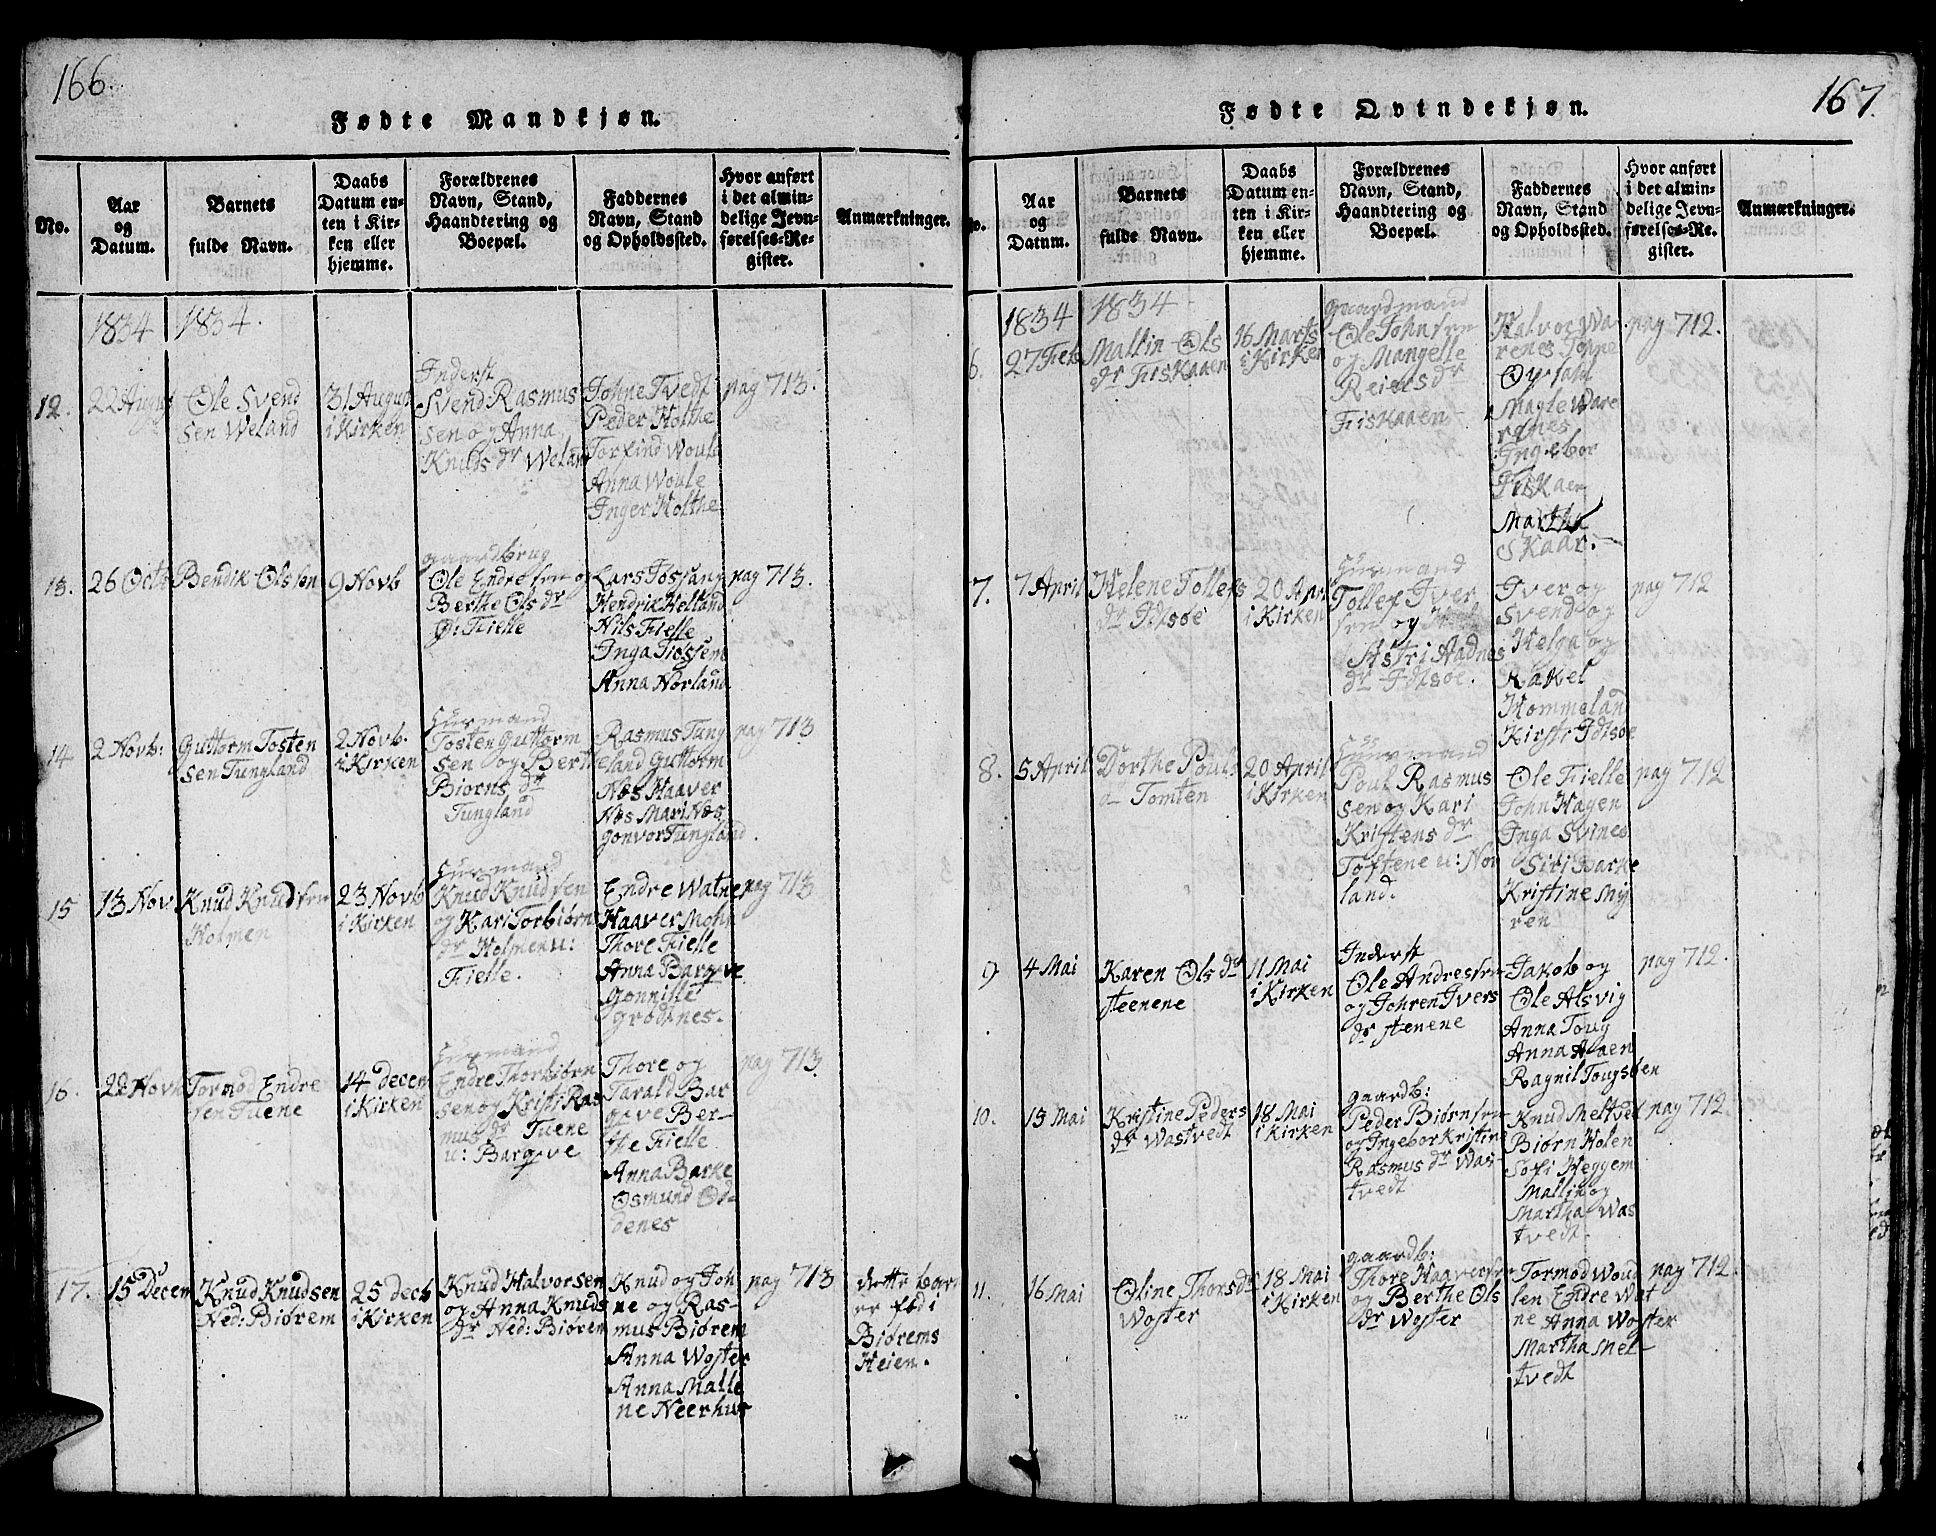 166.
Fødte Mandkjøn.
No.
Aar
og
Datum.
Barnets
fulde Navn.
Daabs
Datum en-
ten i Kir-
ken eller
hjemme.
Forældrenes
Navn, Stand,
Haandtering og
Boepæl.
Faddernes
Navn, Stand
og Opholdssted.
Hvor anført
i det almin-
delige Jevn-
førelses-Re-
gister.
Anmærkninger.
1834
1834.
12.
22 August
Ole Svend
sen Weland
31 August
i Kirken
Inderst
Svend Rasmus
sen og Anna
Knuds dr Weland
Johne Tvedt
Peder Holthe
Torfind Woule
Anna Woule
Inger Holthe
pag 713.
13.
26 Octb
Bendik Olssen
9 Novb
gaardbrug
Ole Endresen og
Berthe Ols dr
Fielle
Lars Fossang
Hendrik Helland
Nils Fielle
Inga Fiossem
Anna Norland
pag 713.
14
2 Novb:
Guttorm Tosten
sen Tungland
2 Novb.
i Kirken
Huusmand
Tosten Guttorm
sen og Berthe
Biørns dr
Tungland
Rasmus Tung
land Guttorm
Næs Haaver
Næs Mari Næs
Gonvor Tungland.
pag 713
15
13 Nov
Knud Knudsen
Holmen
23 Novb
i Kirken
Huusmand
Knud Knudsen
og Kari Torbiørns
dr Holmen u:
Fielle.
Endre Watne
Haaver Mohn
Thore Fielle
Anna Bargeve
Gonnille
Grødenes.
pag 713
16.
22 Novb
Tormod Endre
sen Tuene
14 decem
i Kirken
Huusmand
Endre Thorbiørn
sen og Kristi Ras
mus dr Tuene
u: Bargeve
Thore og
Tarald Bar
geve Ber-
the Fielle
Anna Barke
Osmund Od-
denes
pag 713.
17.
15 Decem
Knud Knudsen
Ned: Biørem
25 decb
i Kirken
Knud Halvorsen
og Anna Knuds
dr Ned: Biørem
Knud og Joh
ne og Ras-
mus Biørem
Anna Woster
Anna Malle
ne Neerhus
pag 713
dette barn
er fød i
Biørems
Heien.
167.
Fødte Qvindekjøn.
No.
Aar
og
Datum.
Barnets
fulde Navn.
Daabs
Datum en-
ten i Kir-
ken eller
hjemme.
Forældrenes
Navn, Stand,
Haandtering og
Boepæl.
Faddernes
Navn, Stand
og Opholdssted.
Hvor anført
i det almin-
delige Jevn-
førelses-Re-
gister.
Anmærkninger.
1834
1834
6.
27 Feb
Mallin Ols
dr Fiskaaen
16 Marts
i Kirken
gaardmand
Ole Johnsen
og Mangelle
Reiersdr
Fiskaaen
Halvor Wa-
renes Johne
Marte Ware
renes
Ingebor
Fiskaen
Martha
Skaar.
pag 712.
7.
7 April
Helene Tollefs
dr Idsøe
20 April
i Kirken
Huusmand
Tollef Iver
sen og
Astri Aadnes
dr Idsøe.
Iver og
Svend og
Helga og
Rakel
Hommeland
Kirsti Idtsøe
pag 712
8.
5 April
Dorthe Pouls
dr Tomten
20 April
i Kirken
Huusmand
Poul Rasmus
sen og Kari
Kristens dr
Toftene u: Nor
land.
Ole Fielle
John Hagen
Inga Svines
Siri Barke
Kristine Myr
ren
pag 712
9
4 Mai
Karen Ols dr
steenene
11 Mai
i Kirken
Inderst
Ole Andressen
og Johren Ivers
dr stenene
Jakob og
Ole Alsvig
Anna Toug
Anna Aaen
Ragnil Tougsbøen
pag 712.
10.
13 Mai
Kristine Peders
dr Wastvedt
18 Mai
i Kirken
gaardb:
Peder Biørnsen
og Ingebor Kristine
Rasmus dr Was-
tvedt
Knud Meltvet
Biørn Holen
Sofi Heggem
Mallin og
Martha Was
tvedt.
pag 712.
11.
16 Mai
Oline Thorsdr
Woster
18 Mai
i Kirken
gaardb:
Thore Haaversen
og Berthe Ols
dr Woster
Tormod Woud
len Endre Wat
ne Anna Woster
Martha Mel-
tvedt
pag 712.